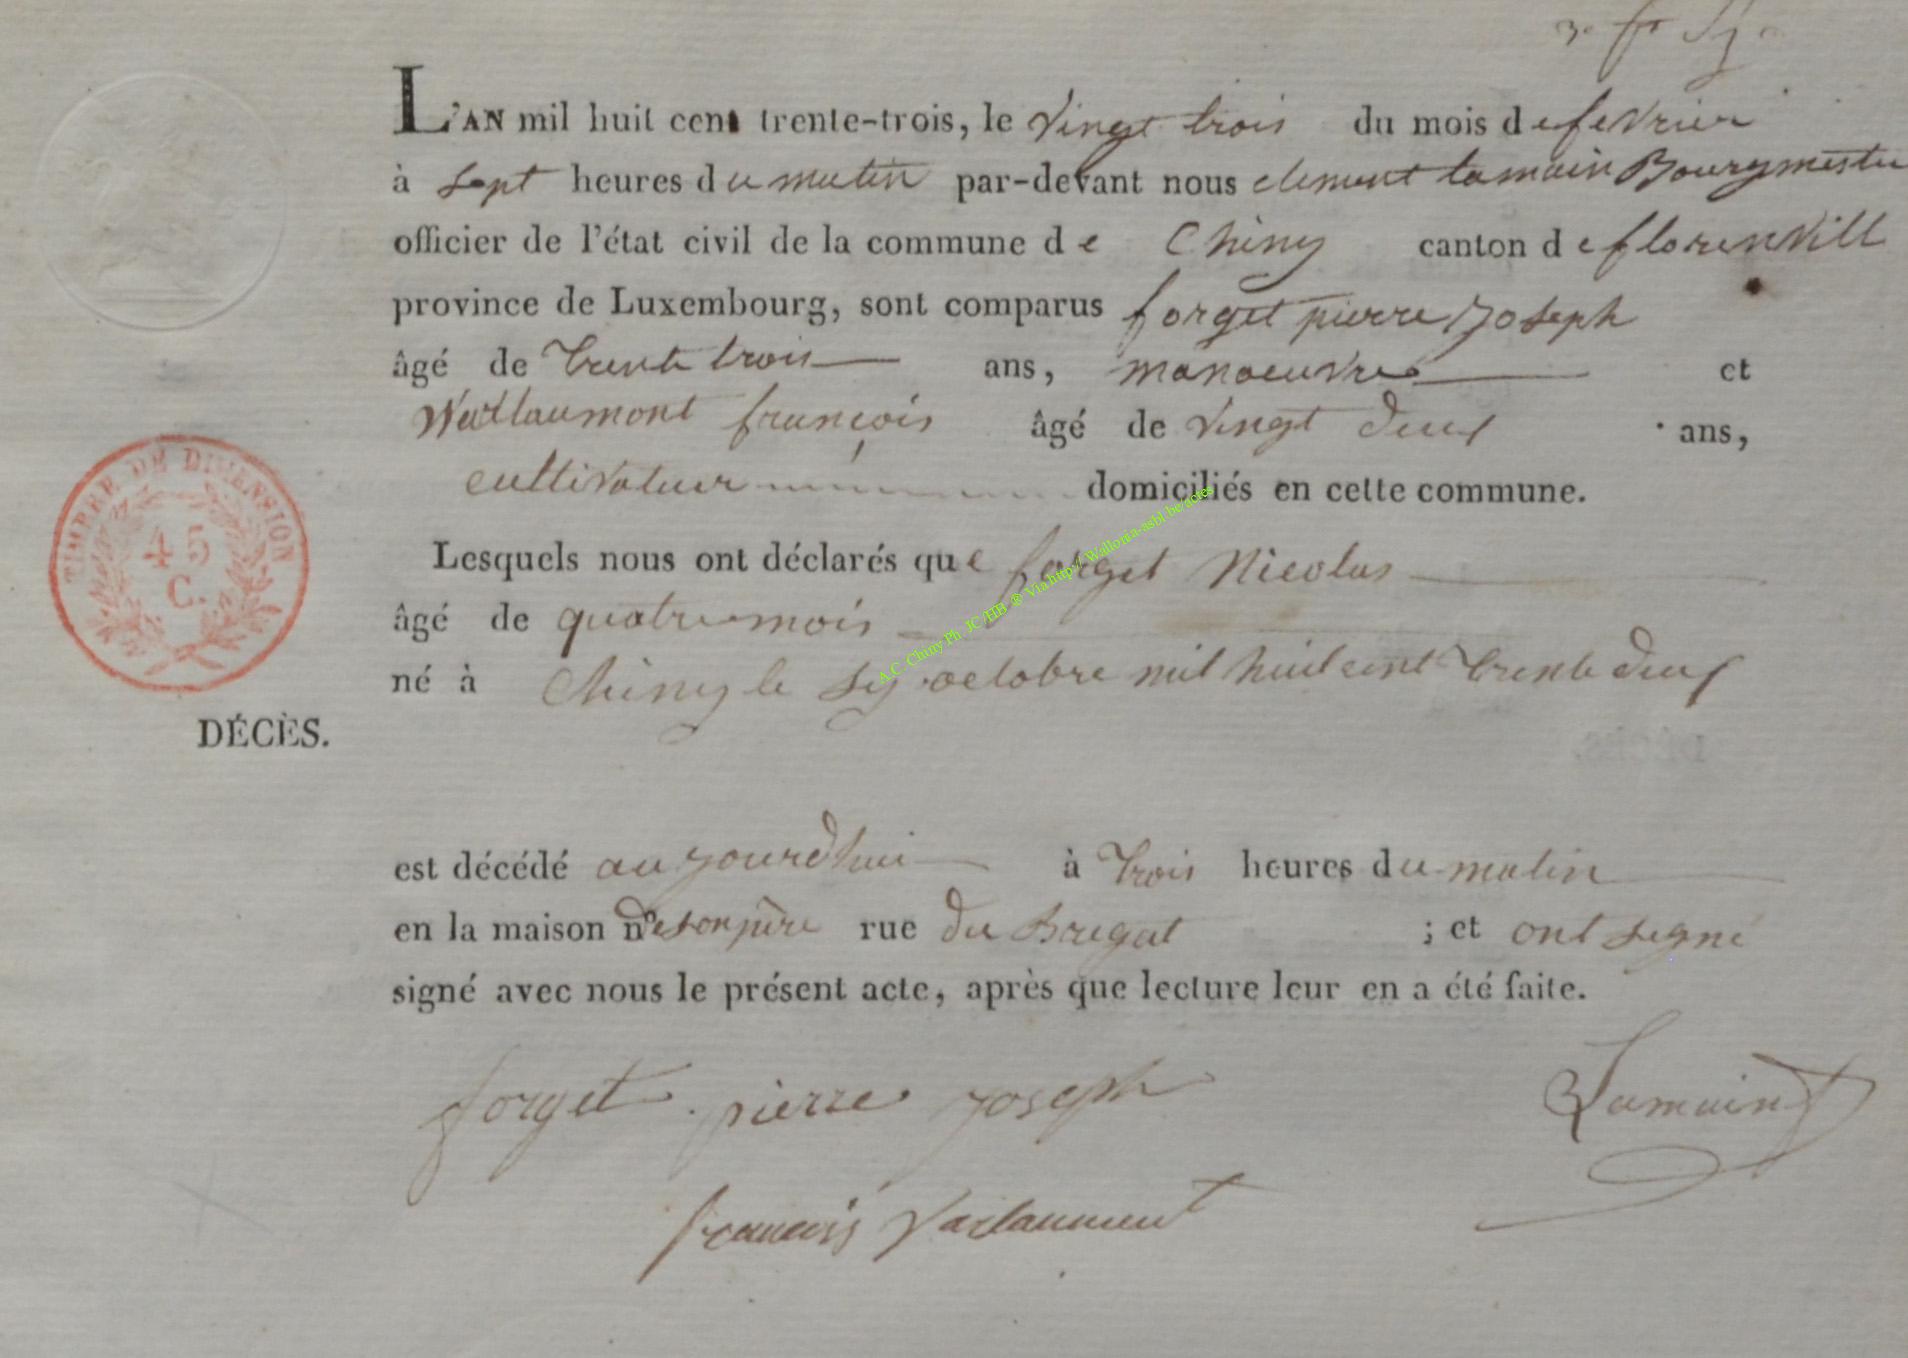 L'AN mil huit cent trente-trois, le vingt trois du mois de fevrier
à sept heures du matin par-devant nous clement lamain Bourgmestre
officier de l'état civil de la commune de Chiny canton de florenvill
province de Luxembourg, sont comparus forget pierre joseph
âgé de trente trois ans, manoeuvre et
Watlaumont françois âgé de vingt deux ans,
cultivateur domiciliés en cette commune.
Lesquels nous ont déclarés que forget Nicolas
âgé de quatre mois
né à Chiny le sy octobre mil huit cent trente deux
TIMBRE DE DIMENSION
45
C.
DÉCÈS.
est décédé aujourdhui à trois heures du matin
en la maison n° de son père rue du Bregat ; et ont signé
signé avec nous le présent acte, après que lecture leur en a été faite.
forget pierre joseph Lamain
francois
A.C. Chiny Ph. JC/HB ® Via http://Wallonia-asbl.be/actes